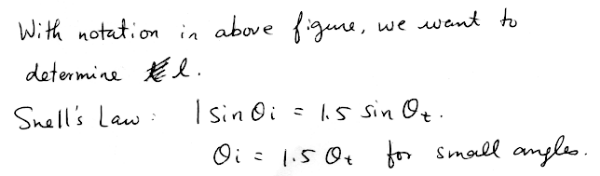 With notation in above figure, we want to
determine l.
Snell's Law: 1 sin θi = 1.5 sin θt.
θi = 1.5 θt for small angles.